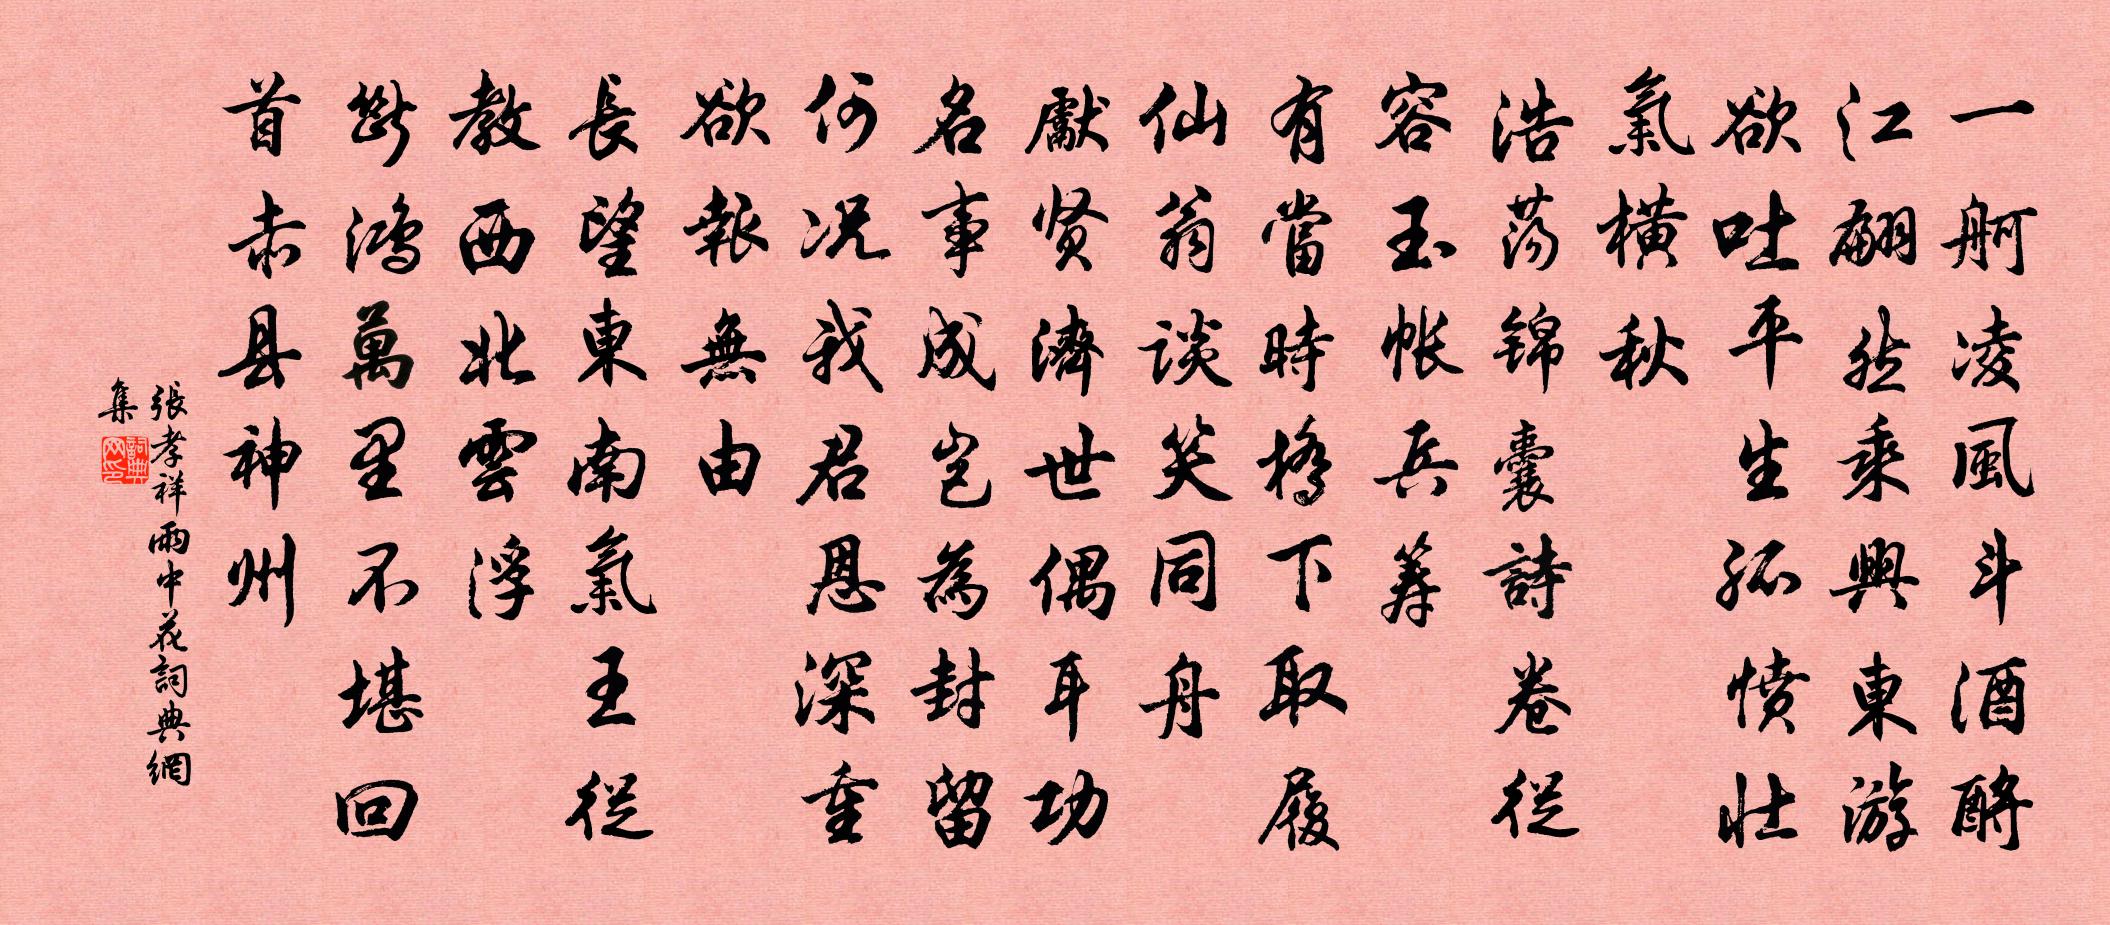 一舸凌風斗酒酹
江翩然乘興東游
欲吐平生孤憤壮
氣横秋
浩荡锦囊詩卷從
容玉帐兵筹
有當時橋下取履
仙翁談笑同舟
獻贤濟世偶耳功
名事成岂為封留
何况我君恩深重
欲報無由
長望東南氣王從
教西北雲浮
斷鴻萬里不堪回
首赤县神州
張孝祥雨中花詞典網
集
詞典網印